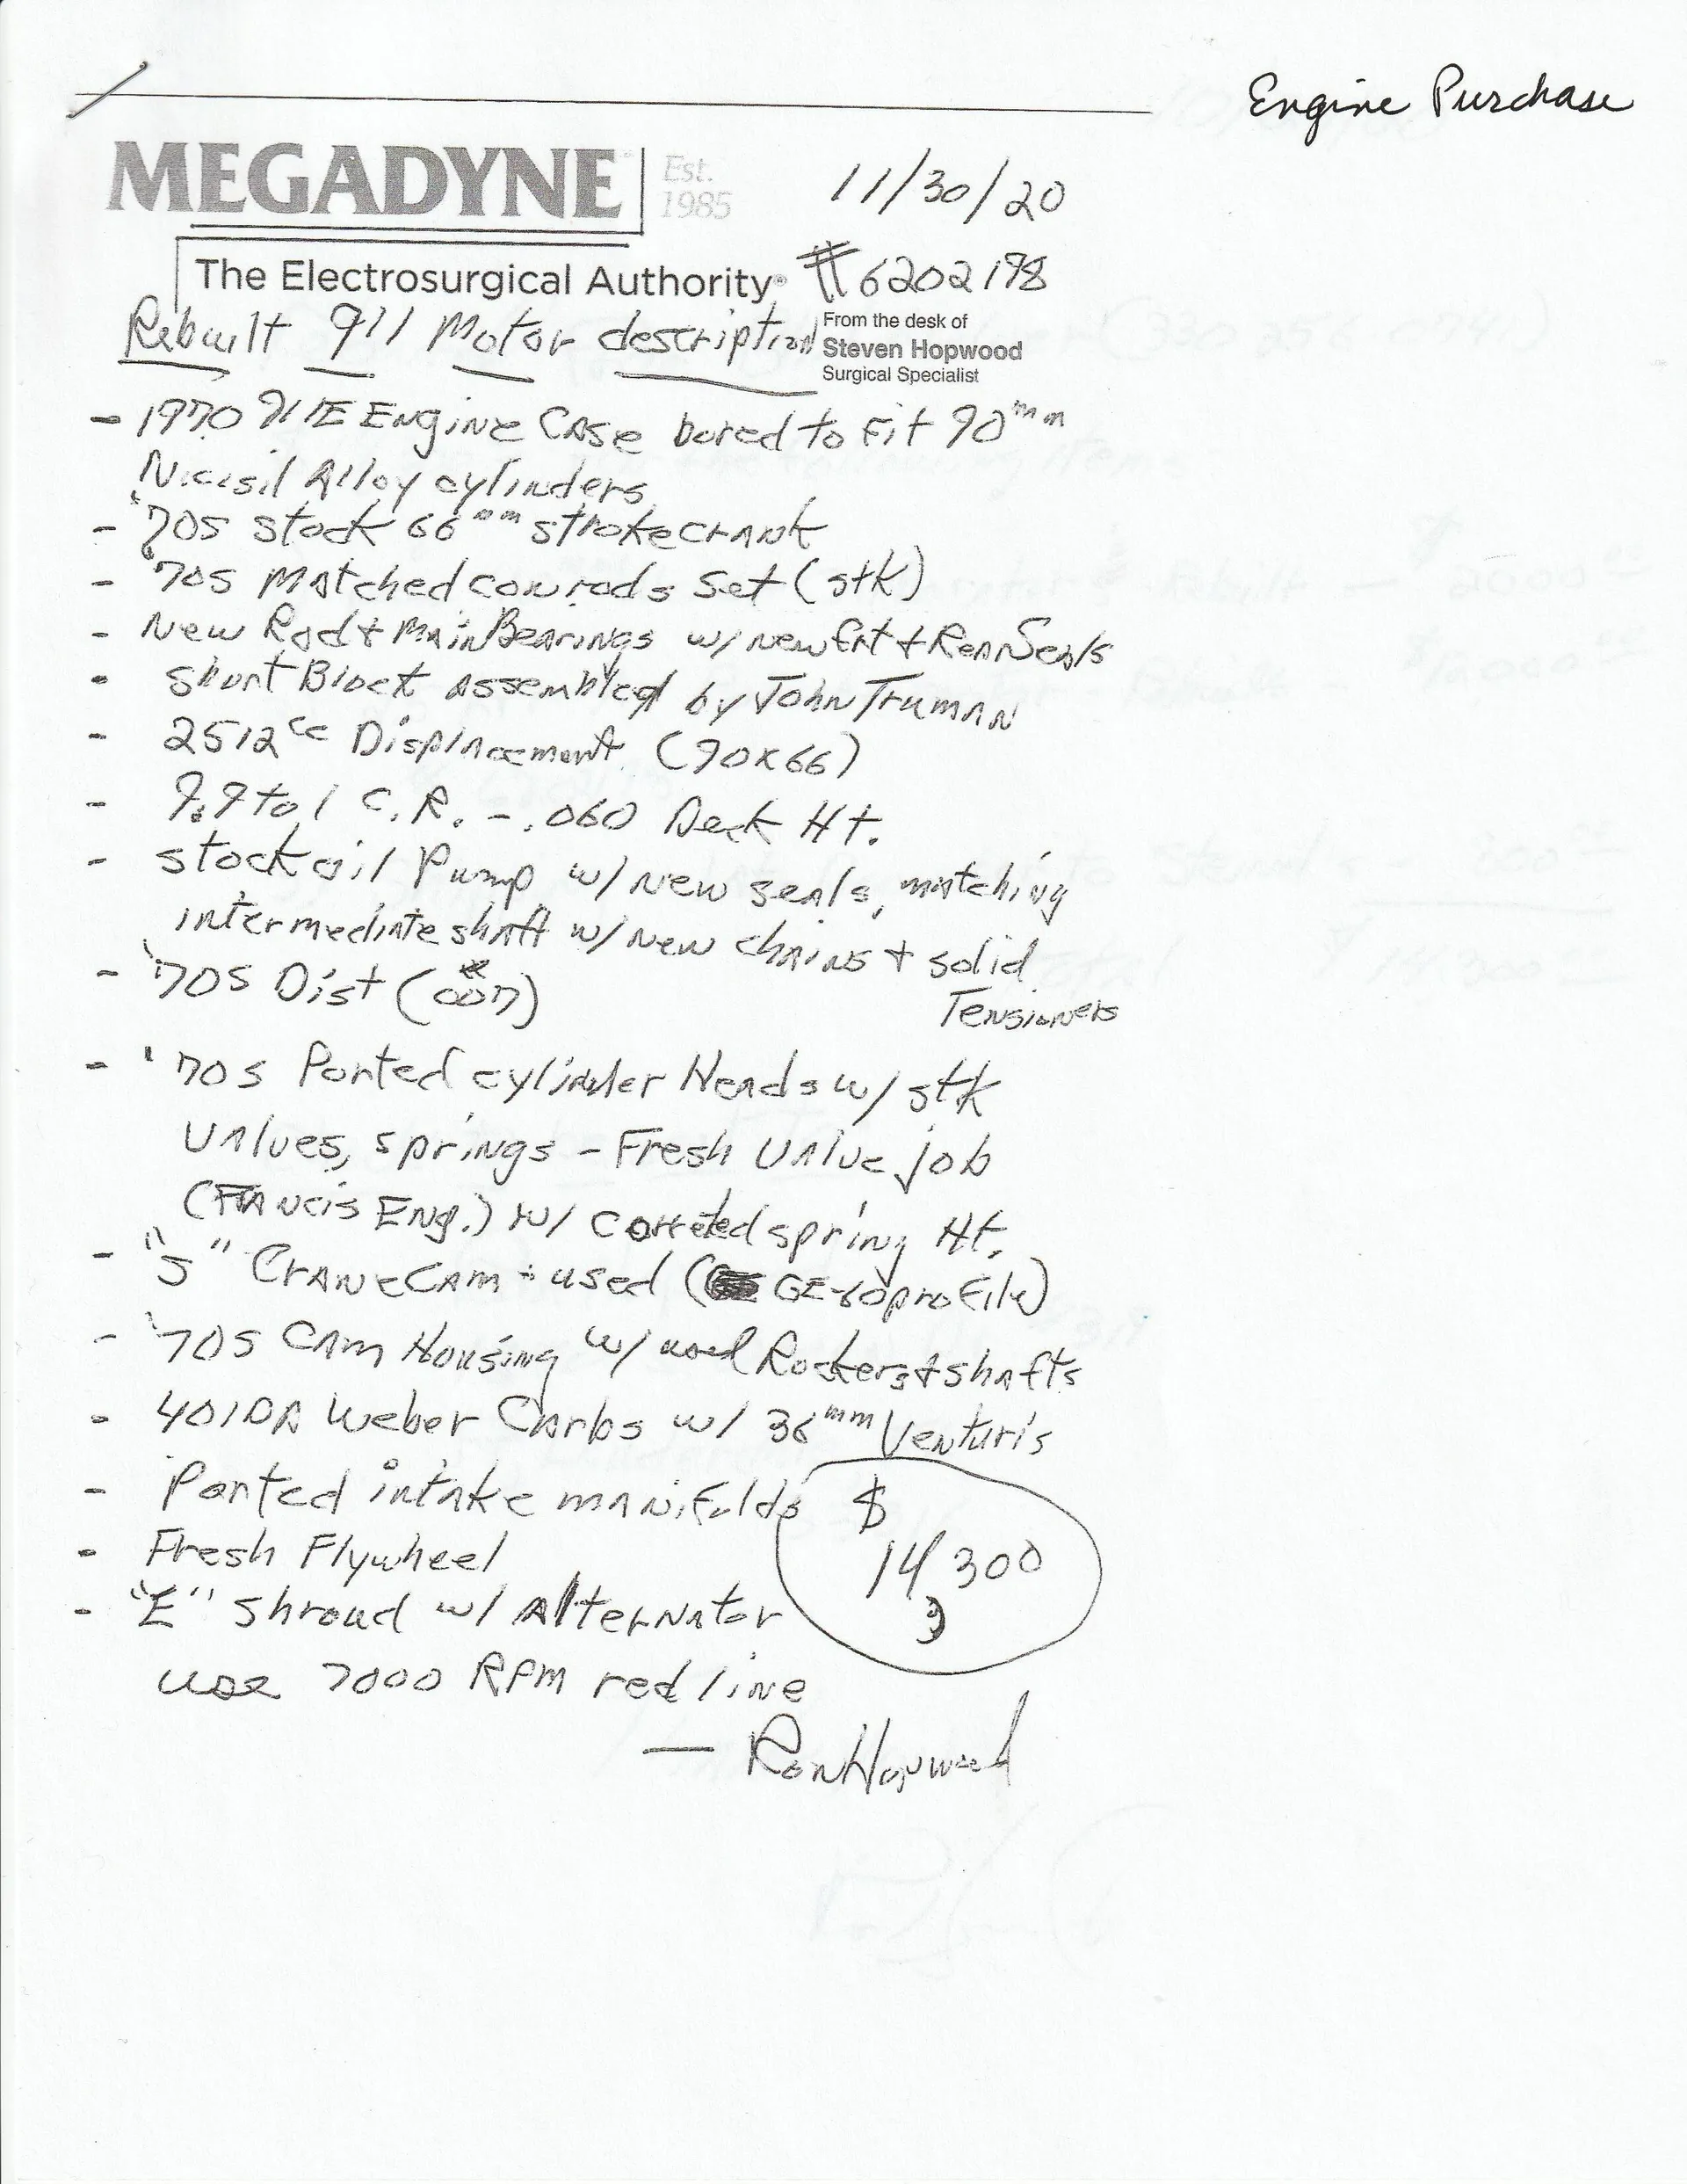 Engine Purchase
MEGADYNE
Est.
1985
11/30/20
The Electrosurgical Authority
#6202198
Rebuilt 911 Motor description
From the desk of
Steven Hopwood
Surgical Specialist
- 1970 911E Engine Case bored to fit 90mm
Nicisil Alloy cylinders
- '70S stock 66mm stroke crank
- '70S Matched conrods set (stk)
- New Rod + Main Bearings w/ new Frt + Rear Seals
- Short Block assembled by John Truman
- 2512cc Displacement (90x66)
- 9.9 to 1 C.R. - .060 Deck Ht.
- stock oil Pump w/ new seals, matching
intermediate shaft w/ new chains + solid
Tensioners
- '70S Dist (007)
- '70S Ported cylinder Heads w/ stk
Valves, springs - Fresh Valve job
(Francis Eng.) w/ corrected spring Ht.
- "S" Crane Cam - used (GE-60 profile)
- '70S Cam Housing w/ used Rockers + shafts
- 40IDA Weber Carbs w/ 36mm Venturi's
- Ported intake manifolds
- Fresh Flywheel
- "E" shroud w/ Alternator
$
14,300
use 7000 RPM red line
— Ron Hopwood